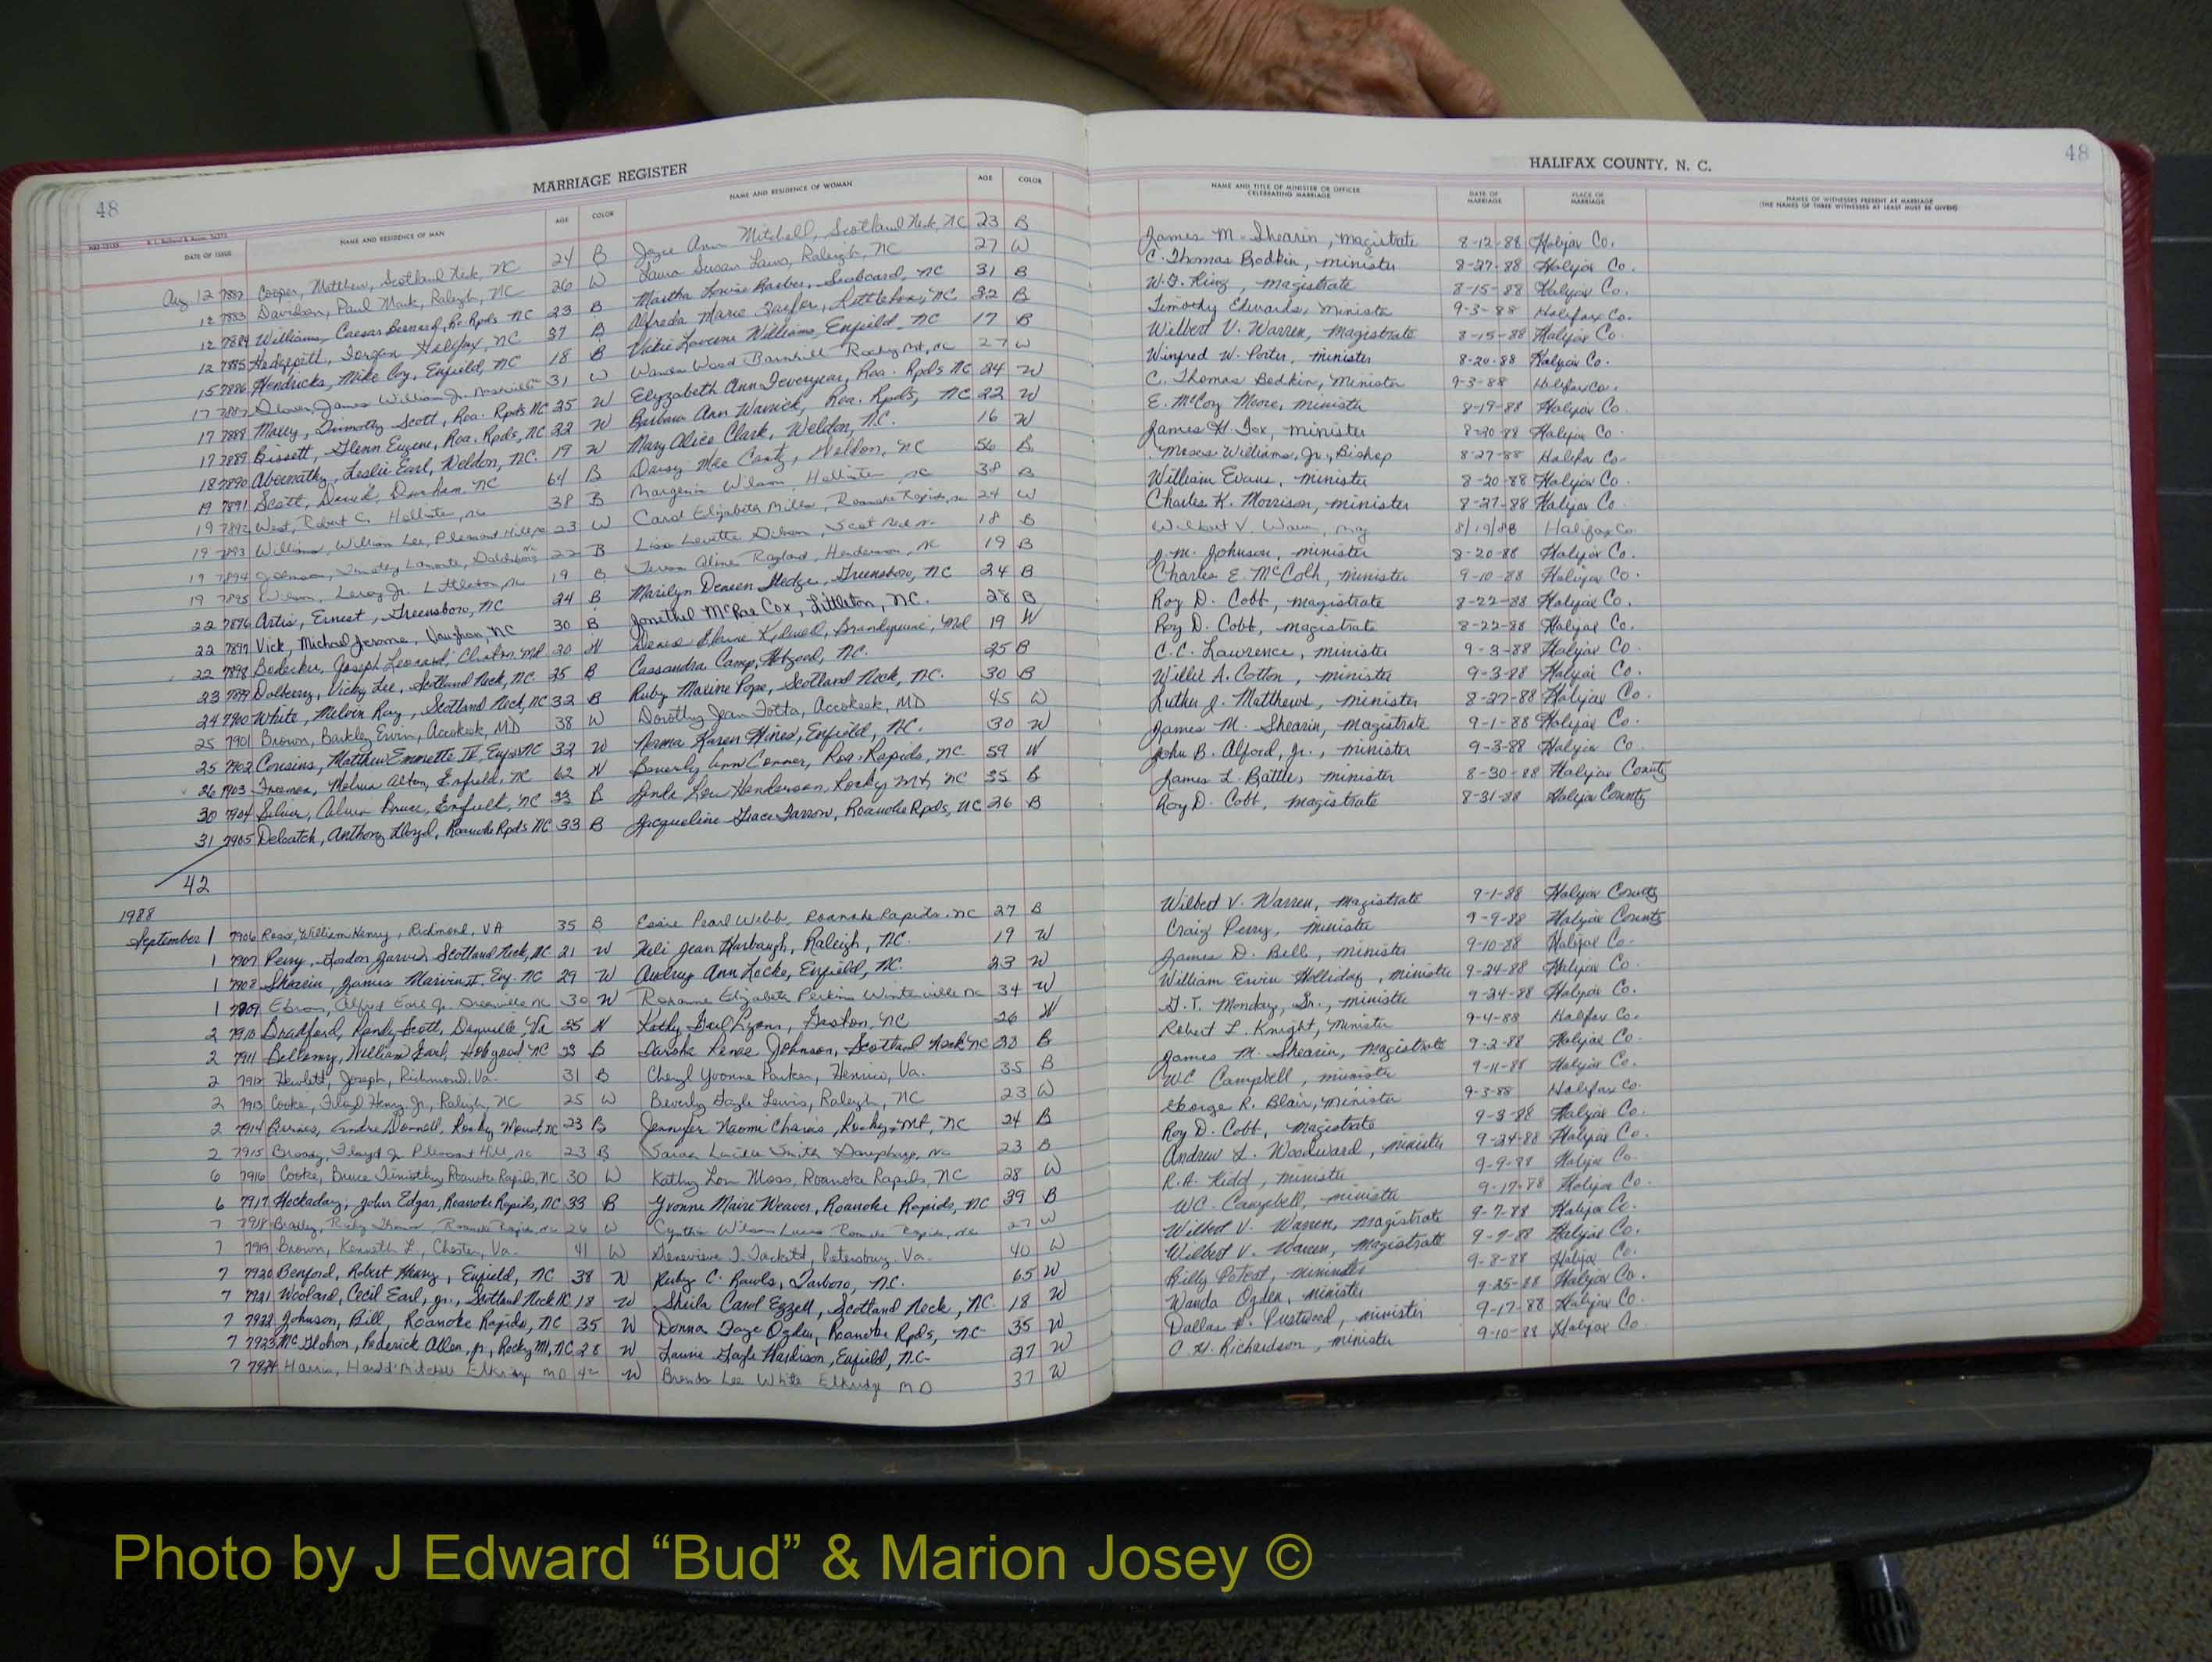 48
MARRIAGE REGISTER
HALIFAX COUNTY, N. C.
48
DATE OF ISSUE NAME AND RESIDENCE OF MAN AGE COLOR NAME AND RESIDENCE OF WOMAN AGE COLOR NAME AND TITLE OF MINISTER OR OFFICER CELEBRATING MARRIAGE DATE OF MARRIAGE PLACE OF MARRIAGE NAMES OF WITNESSES PRESENT AT MARRIAGE (THE NAMES OF THREE WITNESSES AT LEAST MUST BE GIVEN)
Aug 12 7882 Cooper, Matthew, Scotland Neck, NC 24 B Joyce Ann Mitchell, Scotland Neck, NC 23 B James M. Shearin, magistrate 8-12-88 Halifax Co.
12 7883 Davidson, Paul Mark, Raleigh, NC 26 W Laura Susan Laws, Raleigh, NC 27 W C. Thomas Bodkin, minister 8-27-88 Halifax Co.
12 7884 Williams, Caesar Bernard, Ro. Rpds NC 23 B Martha Louise Barber, Seaboard, NC 31 B W.G. King, magistrate 8-15-88 Halifax Co.
12 7885 Hedgepitt, Halifax, NC 37 B Alfreda Marie Littleton, NC 32 B Timothy Edwards, Minister 9-3-88 Halifax Co.
15 7886 Hendricks, Mike Coy, Enfield, NC 18 B Vickie Laverne Williams, Enfield, NC 17 B Wilbert V. Warren, magistrate 8-15-88 Halifax Co.
17 7887 James William Jr. 31 W Wanda Wood Barnhill Rocky Mt, NC 27 W Winfred W. Porter, minister 8-20-88 Halifax Co.
17 7888 Timothy Scott, Roa. Rpds NC 25 W Elyzabeth Ann Roa. Rpds NC 24 W C. Thomas Bodkin, Minister 9-3-88 Halifax Co.
17 7889 Bissett, Glenn Eugene, Roa. Rpds, NC 22 W Barbara Ann Warrick, Roa. Rpds, NC 22 W E. McCoy Moore, minister 8-19-88 Halifax Co.
18 7890 Abernathy, Leslie Earl, Weldon, NC. 19 W Mary Alice Clark, Weldon, N.C. 16 W James H. Fox, minister 8-20-88 Halifax Co.
19 7891 Scott, David, Durham, NC 64 B Daisy Mae Weldon, NC 56 B Moses Williams, Jr., Bishop 8-27-88 Halifax Co.
19 7892 West, Robert C. Hollister, NC 38 B Wilson, Hollister NC 38 B William Evans, minister 8-20-88 Halifax Co.
19 7893 Williams, William Lee, Pleasant Hill, NC 23 W Carol Elizabeth Miller, Roanoke Rapids, NC 24 W Charles K. Morrison, minister 8-27-88 Halifax Co.
19 7894 Johnson, Timothy Lamonte, 22 B Lisa Levette Scot Neck NC 18 B Wilbert V. Warren, mag 8/19/88 Halifax Co
19 7895 Wilson, Leroy Jr. Littleton, NC 19 B Aline Ragland, Henderson, NC 19 B J.M. Johnson, minister 8-20-88 Halifax Co.
22 7896 Artis, Ernest, Greensboro, NC 24 B Marilyn Deneen Hedge, Greensboro, NC 24 B Charles E. McColh, minister 9-10-88 Halifax Co.
22 7897 Vick, Michael Jerome, Vaughan, NC 30 B Jonethel McRae Cox, Littleton, NC. 28 B Roy D. Cobb, magistrate 8-22-88 Halifax Co.
22 7898 Joseph Leonard, Clinton, Md 20 W Denise Elaine Kidwell, Brandywine, Md 19 W Roy D. Cobb, magistrate 8-22-88 Halifax Co.
23 7899 Dolberry, Vicky Lee, Scotland Neck, NC. 35 B Cassandra Camp, Hobgood, NC. 25 B C.C. Lawrence, minister 9-3-88 Halifax Co.
24 7900 White, Melvin Ray, Scotland Neck, NC 32 B Ruby Maxine Pope, Scotland Neck, NC. 30 B Willie A. Cotton, minister 9-3-88 Halifax Co.
25 7901 Brown, Barkley Ervin, Accokeek, MD 38 W Dorothy Jean Totta, Accokeek, MD 45 W Luther J. Matthews, minister 8-27-88 Halifax Co.
25 7902 Cousins, Matthew Emmette IV, NC 32 W Norma Karen Hines, Enfield, NC. 30 W James M. Shearin, Magistrate 9-1-88 Halifax Co.
26 7903 Melvin Alton, Enfield, NC 62 W Beverly Ann Conner, Roa. Rapids, NC 59 W John B. Alford, Jr., minister 9-3-88 Halifax Co
30 7904 Silver, Alvin Bruce, Enfield, NC 33 B Linda Lou Henderson, Rocky Mt, NC 35 B James L. Battle, minister 8-30-88 Halifax County
31 7905 Deloatch, Anthony Lloyd, Roanoke Rpds NC 33 B Jacqueline Grace Farrow, Roanoke Rpds, NC 26 B Roy D. Cobb, magistrate 8-31-88 Halifax County
42
1988
September 1 7906 Ross, William Henry, Richmond, VA 35 B Essie Pearl Webb, Roanoke Rapids, NC 27 B Wilbert V. Warren, magistrate 9-1-88 Halifax County
1 7907 Perry, Jarvis Scotland Neck, NC 21 W Jean Harbaugh, Raleigh, NC. 19 W Craig Perry, minister 9-9-88 Halifax County
1 7908 Shearin, James Marvin II, NC 29 W Audrey Ann Locke, Enfield, NC. 23 W James D. Bell, minister 9-10-88 Halifax Co.
1 7909 Ebron, Alfred Earl Jr. Greenville NC 30 W Roxanne Elizabeth Perkins Winterville NC 34 W William Ervin Holliday, minister 9-24-88 Halifax Co.
2 7910 Bradford, Randy Scott, Danville, Va 25 W Kathy Gail Lyons, Gaston, NC 26 W G.T. Monday, Sr., minister 9-24-88 Halifax Co.
2 7911 Bellamy, William Earl, Hobgood NC 33 B Renae Johnson, Scotland Neck NC 33 B Robert L. Knight, Minister 9-4-88 Halifax Co.
2 7912 Hewlett, Joseph, Richmond, Va. 31 B Cheryl Yvonne Parker, Henrico, Va. 35 B James M. Shearin, Magistrate 9-2-88 Halifax Co.
2 7913 Cooke, Floyd Henry Jr., Raleigh, NC 25 W Beverly Gayle Lewis, Raleigh, NC 23 W WC Campbell, minister 9-11-88 Halifax Co.
2 7914 Andre Donnell, Rocky Mount, NC 23 B Jennifer Naomi Rocky Mt, NC 24 B George R. Blair, minister 9-3-88 Halifax Co.
2 7915 Broady, Floyd Jr Pleasant Hill, NC 23 B Sarah Lucille Smith NC 23 B Roy D. Cobb, Magistrate 9-3-88 Halifax Co.
6 7916 Cooke, Bruce Timothy, Roanoke Rapids, NC 30 W Kathy Lou Moss, Roanoke Rapids, NC 28 W Andrew L. Woodward, minister 9-24-88 Halifax Co.
6 7917 Hockaday, John Edgar, Roanoke Rapids, NC 33 B Yvonne Maire Weaver, Roanoke Rapids, NC 39 B R.A. Kidd, minister 9-9-88 Halifax Co.
7 7918 Roanoke Rapids, NC 26 W Cynthia Wilson Lucas Roanoke Rapids, NC 27 W WC. Campbell, minister 9-17-88 Halifax Co.
7 7919 Brown, Kenneth L., Chester, Va. 41 W Genevieve J. Tackett, Petersburg, Va. 40 W Wilbert V. Warren, magistrate 9-7-88 Halifax Co.
7 7920 Benford, Robert Henry, Enfield, NC 38 W Ruby C. Rawls, Tarboro, N.C. 65 W Wilbert V. Warren, magistrate 9-7-88 Halifax Co.
7 7921 Woolard, Cecil Earl, Jr., Scotland Neck NC 18 W Sheila Carol Ezzell, Scotland Neck, NC. 18 W Billy Poteat, minister 9-8-88 Halifax Co.
7 7922 Johnson, Bill, Roanoke Rapids, NC 35 W Donna Faye Ogden, Roanoke Rpds, NC 35 W Wanda Ogden, minister 9-25-88 Halifax Co.
7 7923 McGlohon, Roderick Allen, Jr., Rocky Mt, NC 28 W Laurie Gayle Hardison, Enfield, N.C. 27 W Dallas minister 9-17-88 Halifax Co.
7 7924 Harris, Harold Mitchell Elkridge MD 42 W Brenda Lee White Elkridge MD 37 W C.H. Richardson, minister 9-10-88 Halifax Co
Photo by J Edward “Bud” & Marion Josey ©